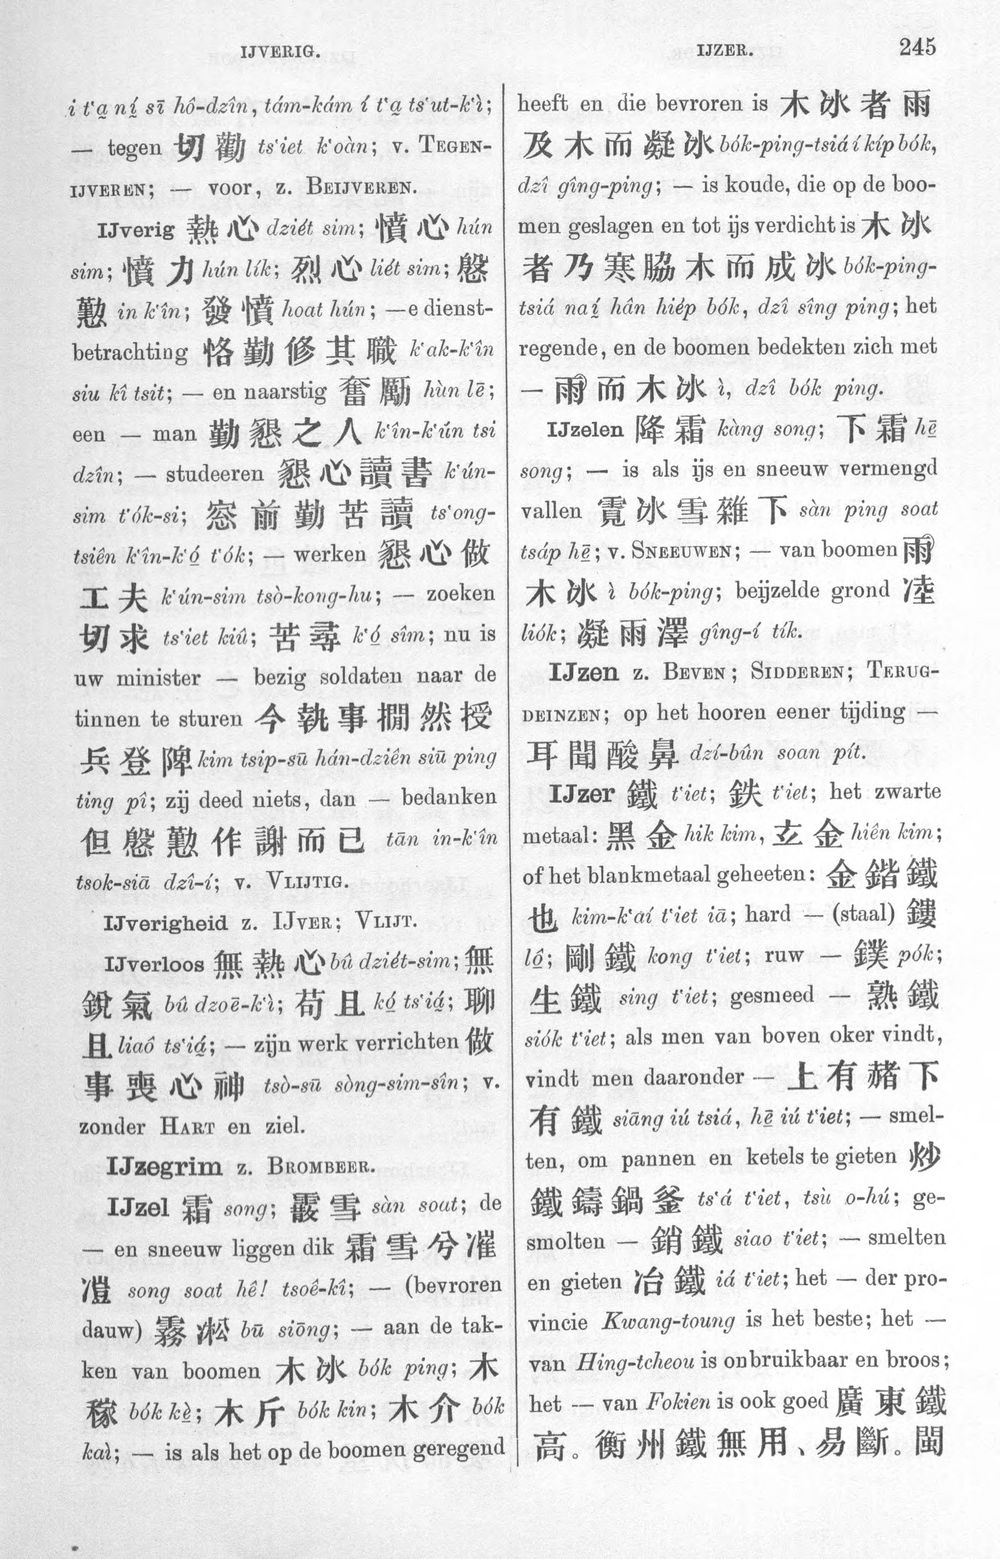 IJVERIG.
IJZER. 245
i t'a̱ ní̱ sī hô-dzîn, tám-kám í t'a̱ ts'ut-k'ì;
— tegen 切勸 ts'iet k'oàn; v. TEGEN-
IJVEREN; — voor, z. BEIJVEREN.
IJverig 熱心 dziét sim; 憤心 hún
sim; 憤力 hún lík; 烈心 liét sim; 慇
懃 in k'în; 發憤 hoat hún; —e dienst-
betrachting 恪勤修其職 k'ak-k'în
siu kî tsit; — en naarstig 奮勵 hùn lē;
een — man 勤懇之人 k'în-k'ún tsi
dzîn; — studeeren 懇心讀書 k'ún-
sim t'ók-si; 窓前勤苦讀 ts'ong-
tsiên k'în-k'ó̱ t'ók; — werken 懇心做
工夫 k'ún-sim tsò-kong-hu; — zoeken
切求 ts'iet kiû; 苦尋 k'ó̱ sîm; nu is
uw minister — bezig soldaten naar de
tinnen te sturen 今執事撊然授
兵登陴 kim tsip-sū hán-dziên siū ping
ting pî; zij deed niets, dan — bedanken
但慇懃作謝而已 tān in-k'în
tsok-siā dzî-í; v. VLIJTIG.
IJverigheid z. IJVER; VLIJT.
IJverloos 無熱心 bû dziét-sim; 無
銳氣 bû dzoē-k'ì; 苟且 kó̱ ts'iá̱; 聊
且 liaô ts'iá̱; — zijn werk verrichten 做
事喪心神 tsò-sū sòng-sim-sîn; v.
zonder HART en ziel.
IJzegrim z. BROMBEER.
IJzel 霜 song; 霰雪 sàn soat; de
— en sneeuw liggen dik 霜雪兮漼
溰 song soat hê! tsoê-kî; — (bevroren
dauw) 霧凇 bū siōng; — aan de tak-
ken van boomen 木冰 bók ping; 木
稼 bók kè̱; 木斤 bók kin; 木介 bók
kaì; — is als het op de boomen geregend
heeft en die bevroren is 木冰者雨
及木而凝冰 bók-ping-tsiá í kíp bók,
dzî gîng-ping; — is koude, die op de boo-
men geslagen en tot ijs verdicht is 木冰
者乃寒脇木而成冰 bók-ping-
tsiá naí̱ hân hiép bók, dzî sîng ping; het
regende, en de boomen bedekten zich met
— 雨而木冰 ì, dzî bók ping.
IJzelen 降霜 kàng song; 下霜 hē̱
song; — is als ijs en sneeuw vermengd
vallen 霓冰雪雜下 sàn ping soat
tsáp hē̱; v. SNEEUWEN; — van boomen 雨
木冰 ì bók-ping; beijzelde grond 淕
liók; 凝雨澤 gîng-í tík.
IJzen z. BEVEN; SIDDEREN; TERUG-
DEINZEN; op het hooren eener tijding —
耳聞酸鼻 dzí-bûn soan pít.
IJzer 鐵 t'iet; 鉄 t'iet; het zwarte
metaal: 黑金 hik kim, 玄金 hiên kim;
of het blankmetaal geheeten: 金鍇鐵
也 kim-k'aí t'iet iā; hard — (staal) 鏤
lô̱; 剛鐵 kong t'iet; ruw — 鏷 pók;
生鐵 sing t'iet; gesmeed — 熟鐵
siók t'iet; als men van boven oker vindt,
vindt men daaronder — 上有赭下
有鐵 siāng iú tsiá, hē̱ iú t'iet; — smel-
ten, om pannen en ketels te gieten 炒
鐵鑄鍋釜 ts'á t'iet, tsù o-hú; ge-
smolten — 銷鐵 siao t'iet; — smelten
en gieten 冶鐵 iá t'iet; het — der pro-
vincie Kwang-toung is het beste; het —
van Hing-tcheou is onbruikbaar en broos;
het — van Fokien is ook goed 廣東鐵
高。衡州鐵無用、易斷。閩